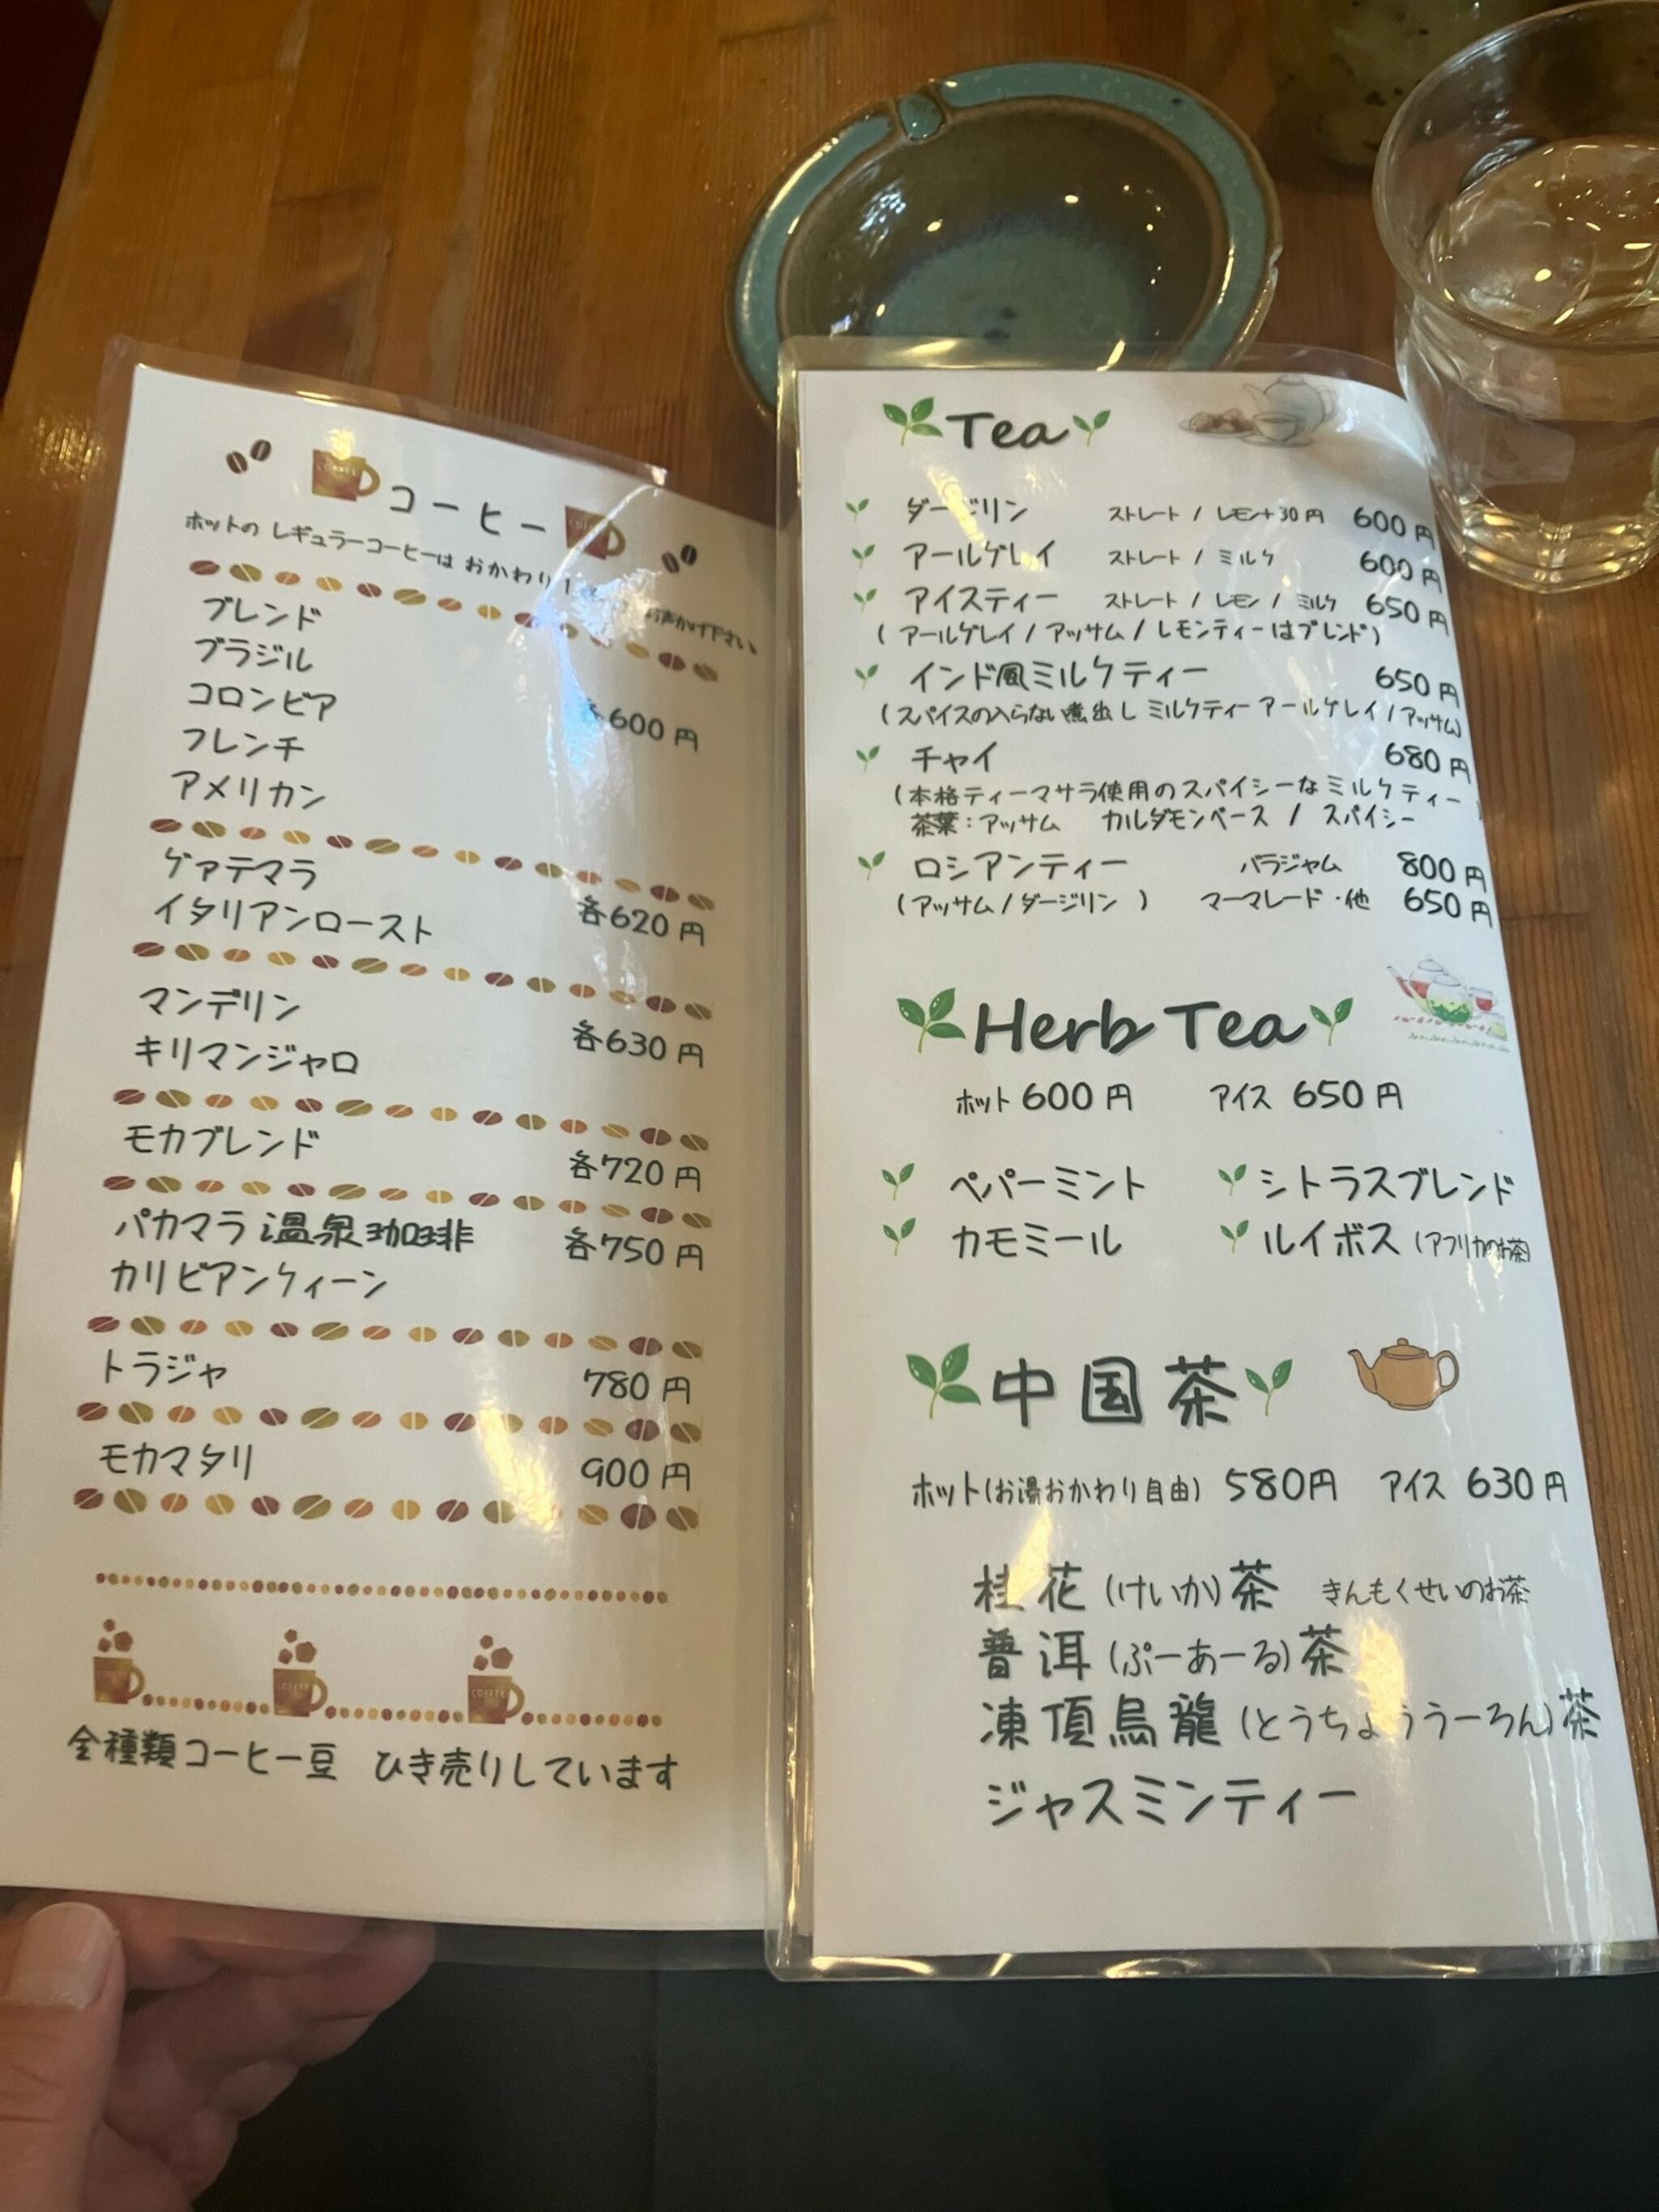 コーヒー
ホットの レギュラーコーヒーは おかわり
お声かけ下さい
ブレンド
ブラジル
コロンビア
各600円
フレンチ
アメリカン
グァテマラ
イタリアンロースト 各620円
マンデリン
キリマンジャロ 各630円
モカブレンド 各720円
パカマラ 温泉珈琲 各750円
カリビアンクィーン
トラジャ 780円
モカマタリ 900円
全種類コーヒー豆 ひき売りしています
Tea
ダージリン ストレート / レモン+30円 600円
アールグレイ ストレート / ミルク 600円
アイスティー ストレート / レモン / ミルク 650円
(アールグレイ / アッサム / レモンティーはブレンド)
インド風ミルクティー 650円
(スパイスの入らない煮出しミルクティー アールグレイ / アッサム)
チャイ 680円
(本格ティーマサラ使用のスパイシーなミルクティー)
茶葉：アッサム カルダモンベース / スパイシー
ロシアンティー バラジャム 800円
(アッサム / ダージリン ) マーマレード・他 650円
Herb Tea
ホット 600円 アイス 650円
ペパーミント シトラスブレンド
カモミール ルイボス (アフリカのお茶)
中国茶
ホット(お湯おかわり自由) 580円 アイス 630円
桂花(けいか)茶 きんもくせいのお茶
普洱(ぷーあーる)茶
凍頂烏龍(とうちょううーろん)茶
ジャスミンティー